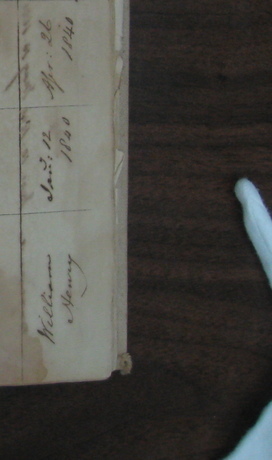 William
Henry
Jan: 12
1840
Apr: 26
1840